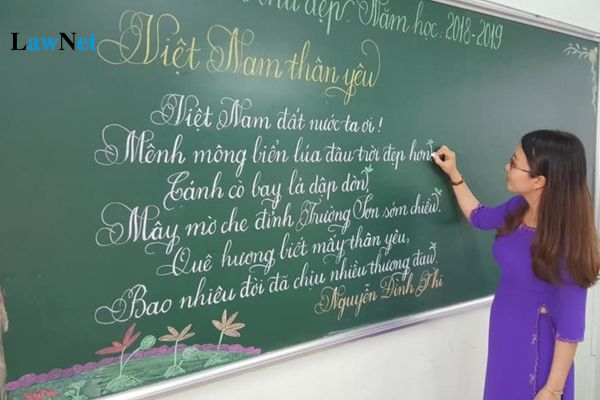 chữ đẹp. Năm học: 2018-2019
LawNet
Việt Nam thân yêu
Việt Nam đất nước ta ơi!
Mênh mông biển lúa đâu trời đẹp hơn
Cánh cò bay lả dập dờn,
Mây mờ che đỉnh Trường Sơn sớm chiều.
Quê hương biết mấy thân yêu,
Bao nhiêu đời đã chịu nhiều thương đau
Nguyễn Đình Thi